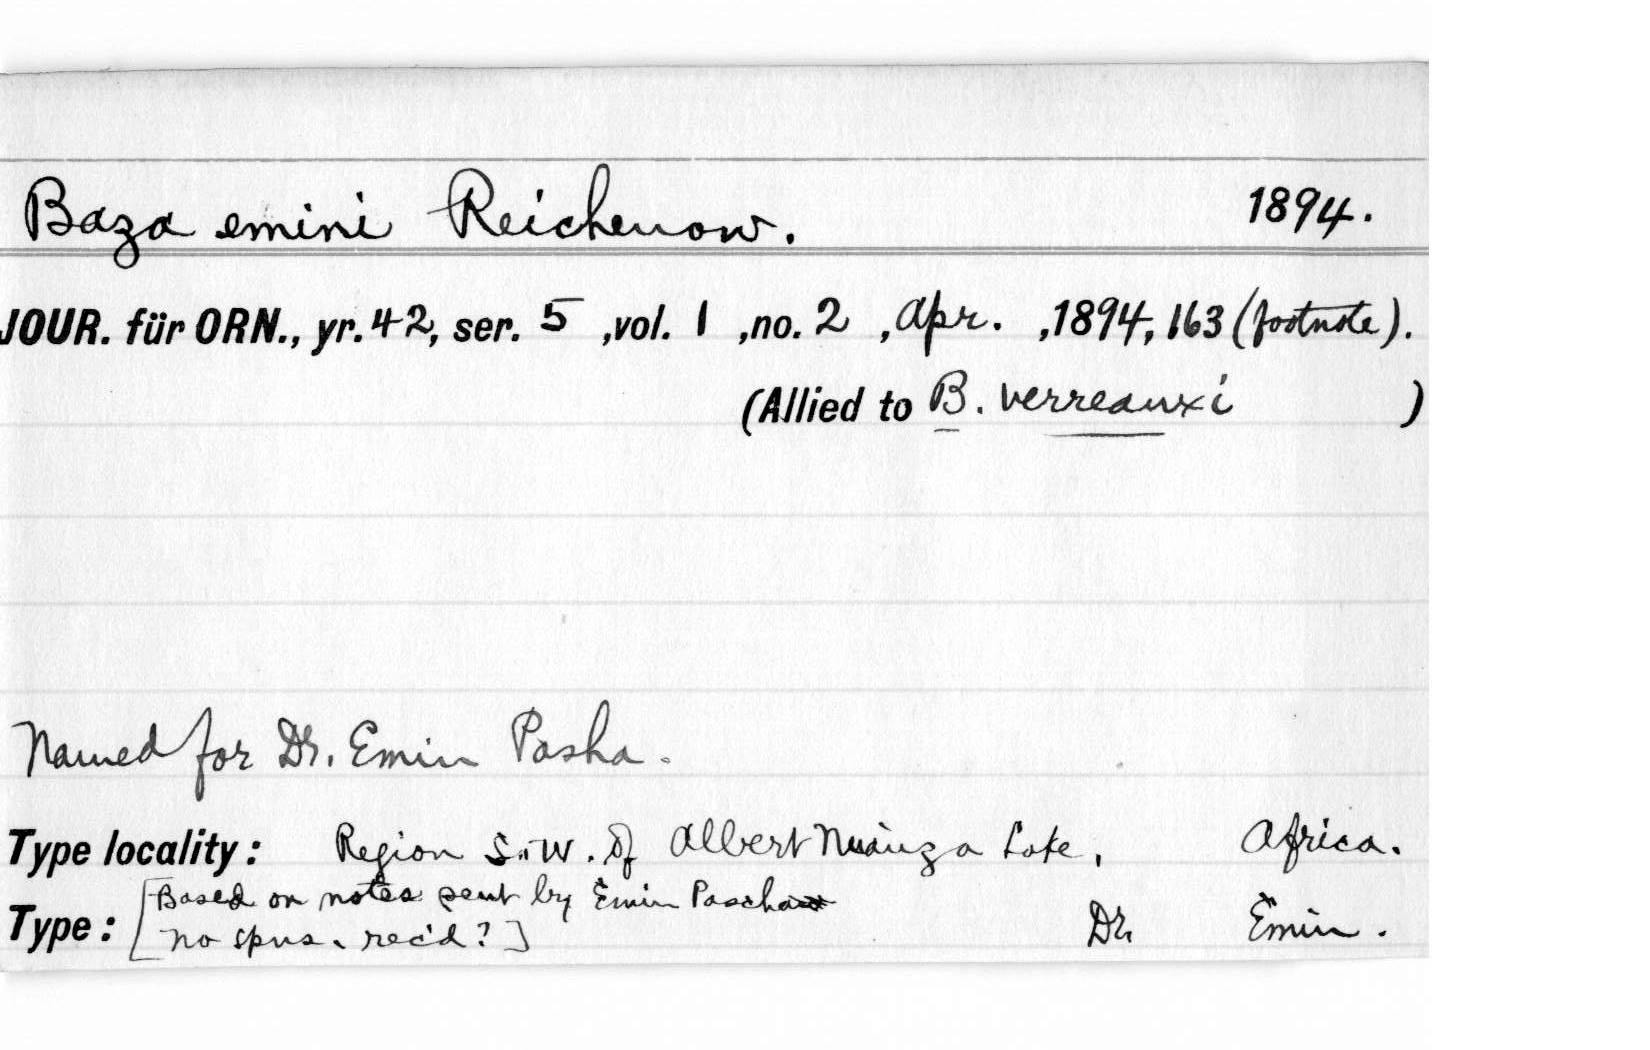 Baza emini Reichenow. 1894.
JOUR. für ORN., yr. 42, ser. 5 ,vol. 1 ,no. 2 , Apr. ,1894, 163 (footnote).
(Allied to B. verreauxi )
Named for Dr. Emin Pasha.
Type locality: Region S.W. of Albert Nyanza Lake, Africa.
[Based on notes sent by Emin Pascha
Type: no spns. rec'd?] Dr. Emin.